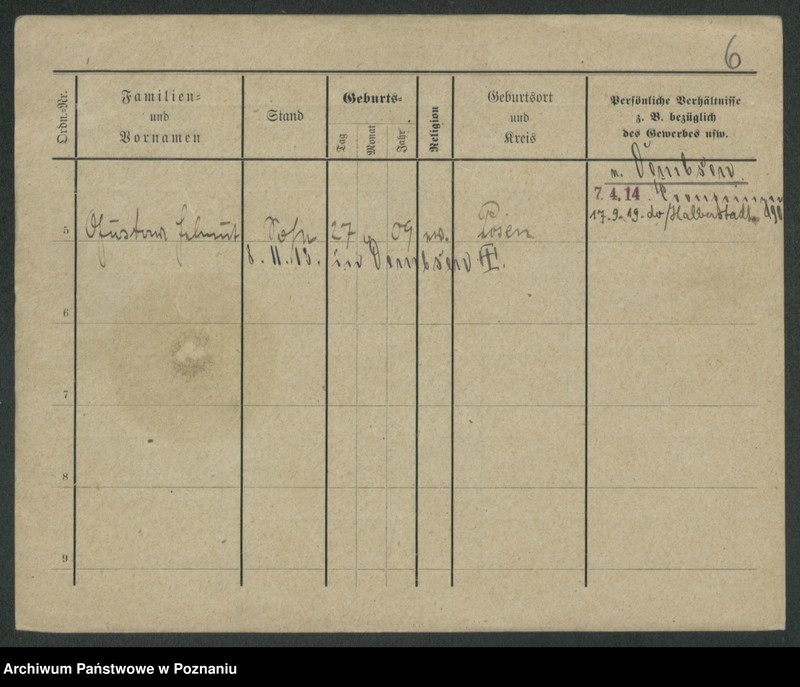 6
Ordn.-Nr.
Familien-
und
Vornamen
Stand
Geburts-
Tag
Monat
Jahr
Religion
Geburtsort
und
Kreis
Persönliche Verhältnisse
z. B. bezüglich
des Gewerbes usw.
n. Dembsen
7.4.14
17.9.19. do/Halberstadt
5 Gustav Helmut Sohn 27 9 09 ev. Posen
8.11.13. in Dembsen III.
6
7
8
9
Archiwum Państwowe w Poznaniu